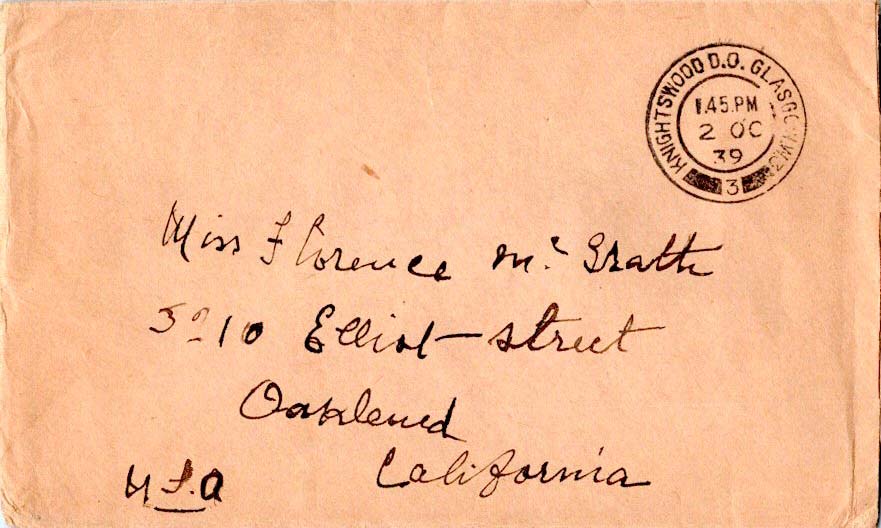 KNIGHTSWOOD D.O. GLASGOW W.3
1.45.PM
2 OC
39
3
Miss Florence Mc Grath
5210 Elliot-street
Oakland
California
U.S.A